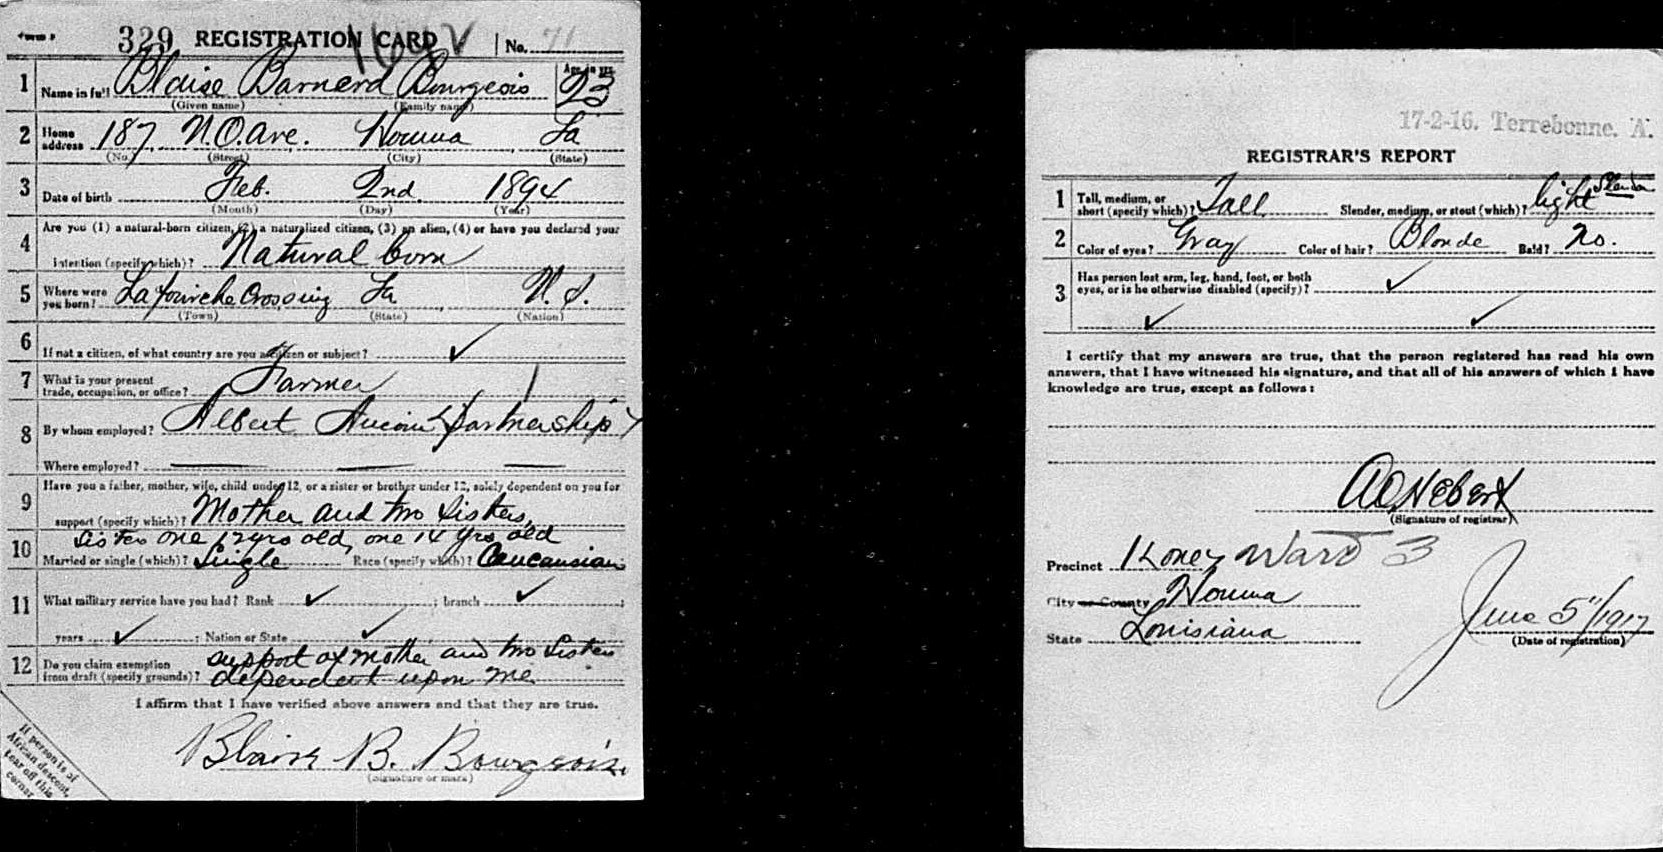 329 REGISTRATION CARD No. 71
Age in yrs.
1 Name in full Blaise Barnard Bourgeois 23
(Given name) (Family name)
2 Home address 187 N.O. Ave. Houma La
(No.) (Street) (City) (State)
3 Date of birth Feb. 2nd 1894
(Month) (Day) (Year)
4 Are you (1) a natural-born citizen, (2) a naturalized citizen, (3) an alien, (4) or have you declared your
intention (specify which)? Natural born
5 Where were you born? Lafourche Crossing La U.S.
(Town) (State) (Nation)
6 If not a citizen, of what country are you a citizen or subject? ✓
7 What is your present trade, occupation, or office? Farmer
8 By whom employed? Albert Aucoin partnership
Where employed?
9 Have you a father, mother, wife, child under 12, or a sister or brother under 12, solely dependent on you for
support (specify which)? Mother and two sisters,
Sister one 12yrs old, one 14 yrs old
10 Married or single (which)? Single Race (specify which)? Caucausian
11 What military service have you had? Rank ✓ ; branch ✓ ;
years ✓ ; Nation or State ✓
12 Do you claim exemption from draft (specify grounds)? support of mother and two sisters
dependent upon me
I affirm that I have verified above answers and that they are true.
Blaise B. Bourgeois.
(Signature or mark)
If person is of
African descent,
tear off this
corner
17-2-16. Terrebonne. A.
REGISTRAR'S REPORT
1 Tall, medium, or short (specify which)? Tall Slender, medium, or stout (which)? light Slender
2 Color of eyes? Gray Color of hair? Blonde Bald? No.
3 Has person lost arm, leg, hand, foot, or both
eyes, or is he otherwise disabled (specify)? ✓
✓ ✓
I certify that my answers are true, that the person registered has read his own
answers, that I have witnessed his signature, and that all of his answers of which I have
knowledge are true, except as follows:
(Signature of registrar)
Precinct Ward 3
City or County Houma
State Louisiana
June 5"/1917
(Date of registration)